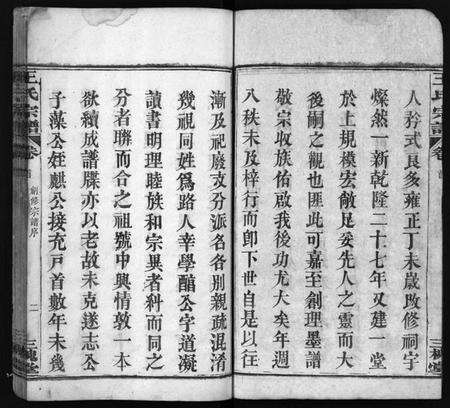 王氏宗譜
卷首
三槐堂
人矜式良多雍正丁未嵗改修祠宇
燦然一新乾隆二十七年又建一堂
於上規模宏敞足妥先人之靈而大
後嗣之觀也匪此可嘉至創理墨譜
敬宗收族佑啟我後功尤大矣年週
八秩未及梓行而卽下世自是以往
漸及祀廢支分派名各別親疏混淆
幾視同姓爲路人幸學醅公宇道凝
讀書明理睦族和宗異者科而同之
分者聨而合之祖號中興情敦一本
欲續成譜牒亦以老故未克遂志公
子藻公姪麒公接充戸首數年未幾
王氏宗譜
卷首
創修宗譜序
二
三槐堂